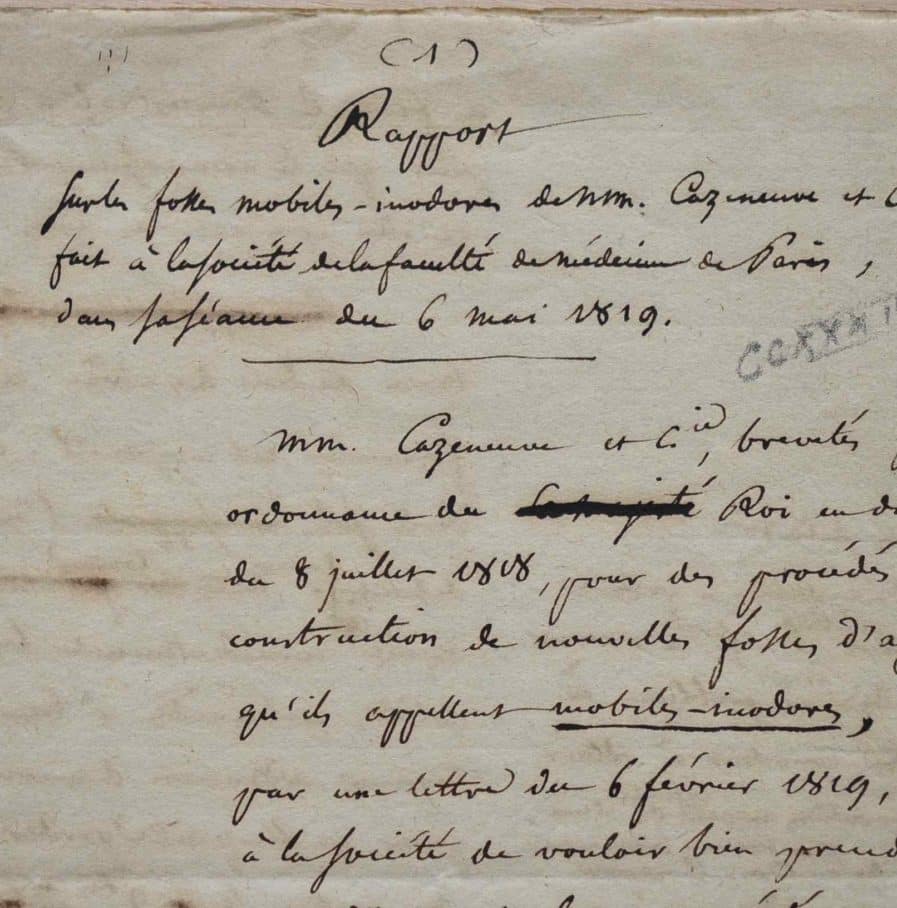 (1)
Rapport
Sur les fosses mobiles-inodores de MM. Cazeneuve et C
fait à la société de la faculté de médecine de Paris,
dans sa séance du 6 mai 1819.
CCXXXI
MM. Cazeneuve et C.ie, brevetés
ordonnance du Roi en d
du 8 juillet 1818, pour des procédés
construction de nouvelles fosses d'a
qu'ils appellent mobiles-inodores,
par une lettre du 6 février 1819,
à la société de vouloir bien prend